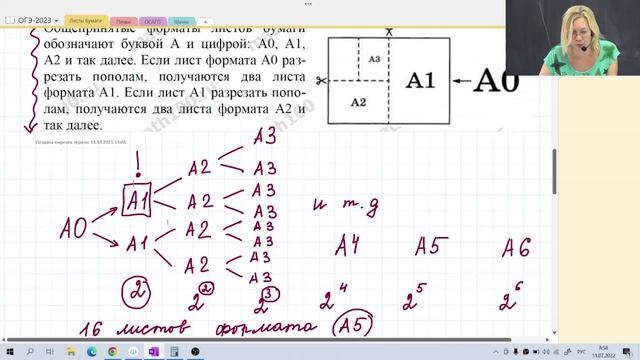 ОГЭ-2023
Листы бумаги
Печки
ОСАГО
Шины
Общепринятые форматы листов бумаги
обозначают буквой А и цифрой: А0, А1,
А2 и так далее. Если лист формата А0 раз-
резать пополам, получаются два листа
формата А1. Если лист А1 разрезать попо-
лам, получаются два листа формата А2 и
так далее.
А3
А2
А1
А0
!
А0
А1
А1
А2
А2
А2
А2
А3
А3
А3
А3
А3
А3
А3
А3
и т.д
А4 А5 А6
2 2² 2³ 2⁴ 2⁵ 2⁶
16 листов формата А5
РУС
8:58
11.07.2022